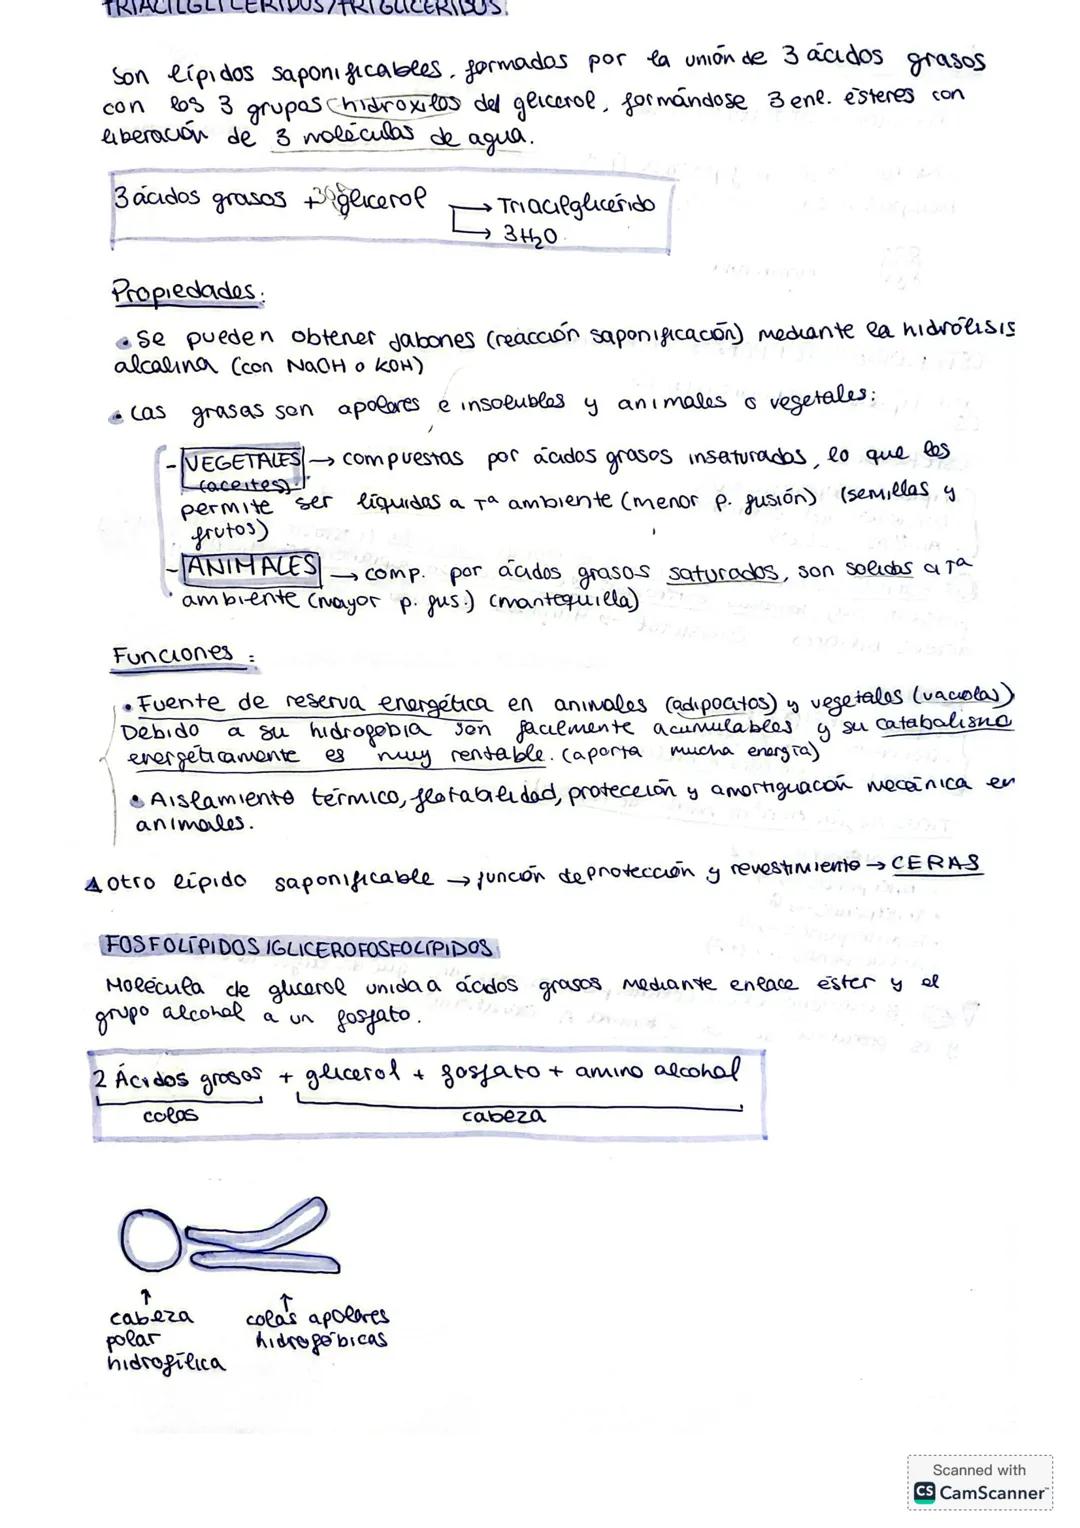 TRIACILGLICÉRIDOS/TRIGLICÉRIDOS.
Son lípidos saponificables, formados por la unión de 3 ácidos grasos
con los 3 grupos hidroxilos del glicerol, formándose 3 enl. ésteres con
liberación de 3 moléculas de agua.
3 ácidos grasos + glicerol → Triacilglicérido
→ 3H2O.
Propiedades:
• Se pueden obtener jabones (reacción saponificación) mediante la hidrólisis
alcalina (con NaOH o KOH)
• Las grasas son apolares e insolubles y animales o vegetales:
- VEGETALES → compuestas por ácidos grasos insaturados, lo que les
(aceites)
permite ser líquidas a Tª ambiente (menor p. fusión) (semillas y
frutos)
- ANIMALES → comp. por ácidos grasos saturados, son solidas a Tª
ambiente (mayor p. fus.) (mantequilla)
Funciones:
• Fuente de reserva energética en animales (adipocitos) y vegetales (vacuolas)
Debido a su hidrofobia son facilmente acumulables y su catabolismo
energéticamente es muy rentable. (aporta mucha energía)
• Aislamiento térmico, flotabilidad, protección y amortiguación mecánica en
animales.
Δ otro lípido saponificable → función de protección y revestimiento → CERAS
FOSFOLÍPIDOS/GLICEROFOSFOLÍPIDOS
Molécula de glicerol unida a ácidos grasos mediante enlace éster y el
grupo alcohol a un fosfato.
2 Ácidos grasos + glicerol + fosfato + amino alcohol
colas cabeza
↑ ↑
cabeza colas apolares
polar hidrofóbicas
hidrofílica
Scanned with
CS CamScanner